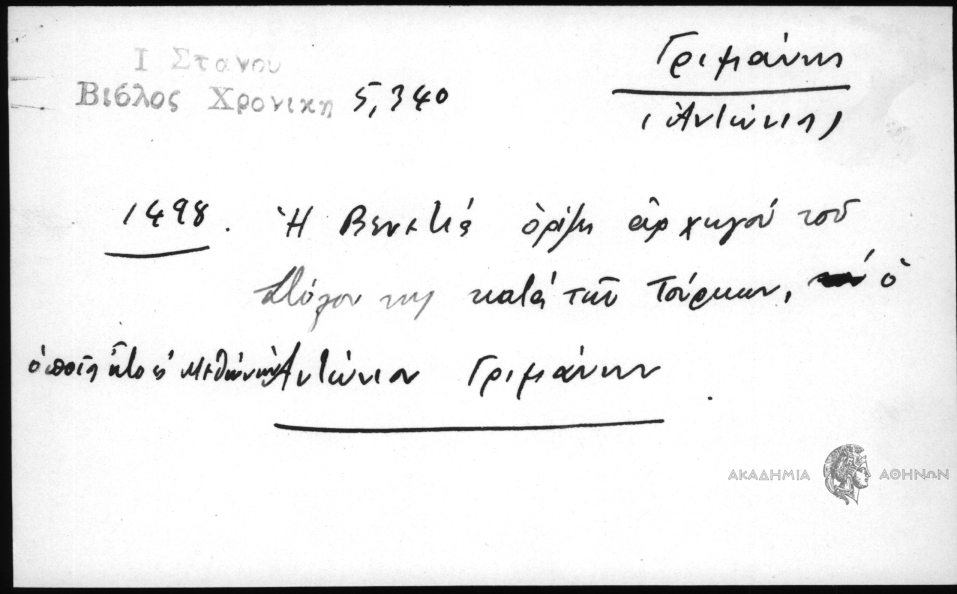 Ι Στανου
Βιβλος Χρονικη 5,340
Γριμάνης
(Ἀντώνιος)
1498. Ἡ Βενετιά ὁρίζει ἀρχηγόν τοῦ
Στόλου της κατά τῶν Τούρκων, ὁ
ὁποῖος Ἀντώνιον Γριμάνην.
ΑΚΑΔΗΜΙΑ ΑΘΗΝΩΝ